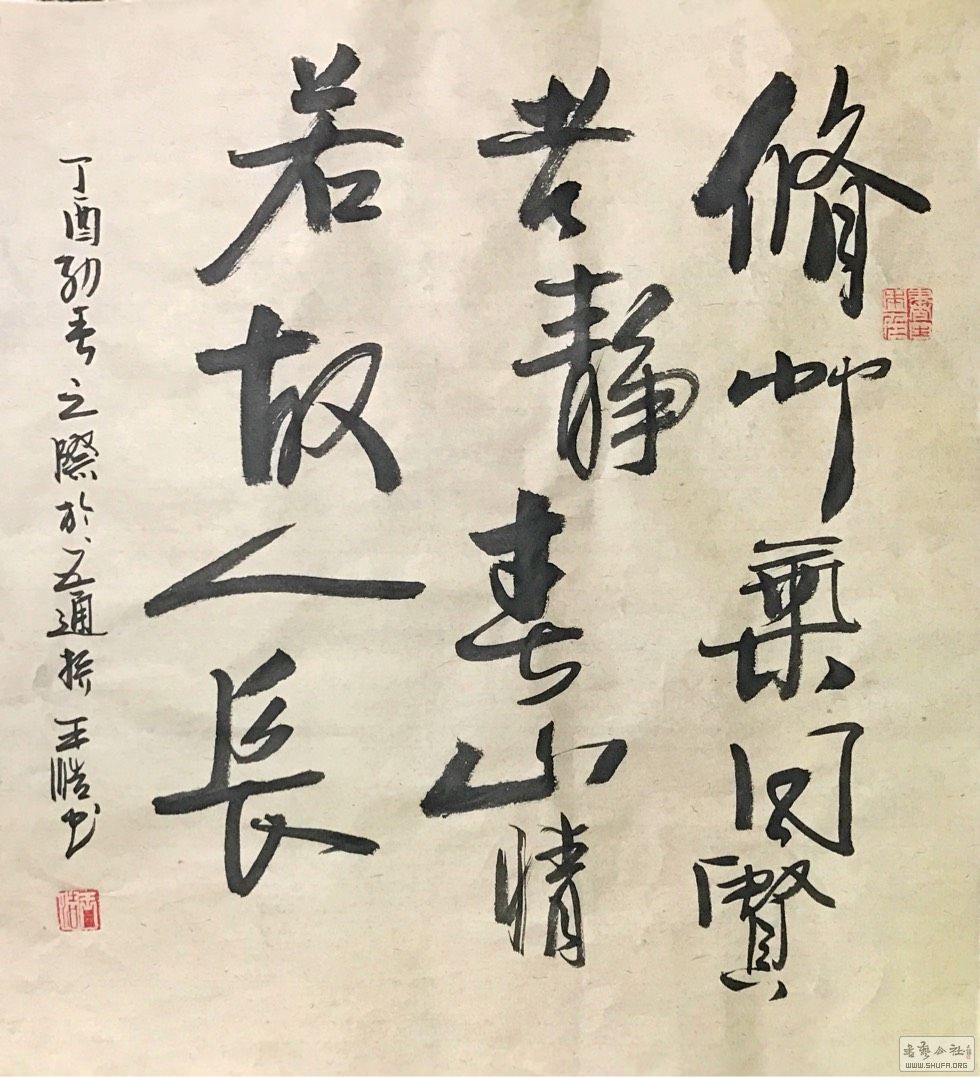 脩竹氣同賢
者靜春山情
若故人長
丁酉初春之際於五通橋王浩书
王浩
书艺公社
WWW.SHUFA.ORG